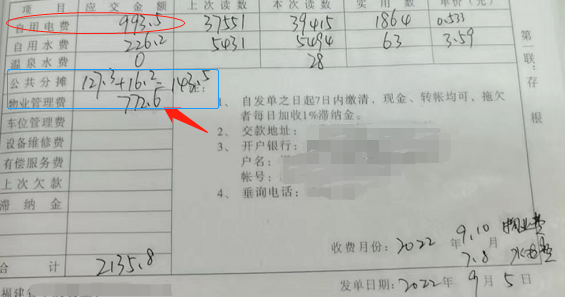 项 目 应 交 金 额 上 次 读 数 本 次 读 数 实 用 数 单 价(元)
自 用 电 费 993.5 37551 39415 1864 0.533
自 用 水 费 226.2 5431 5494 63 3.59
温 泉 水 费 0 28
公 共 分 摊 127.3+16.2= 143.5
物业管理费 772.6
车位管理费
设备维修费
有偿服务费
上 次 欠 款
滞 纳 金
合 计 2135.8
1、 自发单之日起7日内缴清，现金、转帐均可，拖欠
者每日加收1%滞纳金。
2、 交款地址：
3、 开户银行：
户名：
帐号：
4、 垂询电话：
收费月份：2022 年 9.10 月 物业费
7.8 水电费
发单日期：2022 年 9 月 5 日
第一联：存根
福建：